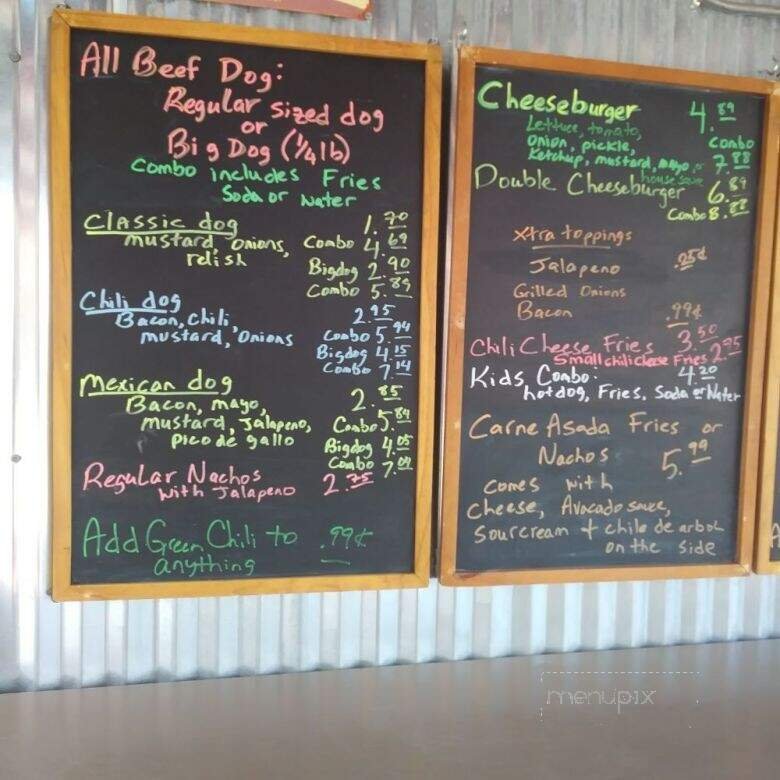 All Beef Dog:
Regular sized dog
or
Big Dog (1/4 lb)
Combo includes Fries
Soda or water
Classic dog 1.70
mustard, onions, Combo 4.69
relish
Bigdog 2.90
Combo 5.89
Chili dog 2.95
Bacon, chili, Combo 5.94
mustard, onions
Bigdog 4.15
Combo 7.14
Mexican dog 2.85
Bacon, mayo,
mustard, Jalapeno, Combo 5.84
pico de gallo
Bigdog 4.05
Combo 7.04
Regular Nachos
with Jalapeno 2.75
Add Green Chili to .99¢
anything
Cheeseburger 4.89
Lettuce, tomato, Combo
onion, pickle, 7.88
Ketchup, mustard, mayo, or
house sauce
Double Cheeseburger 6.89
Combo 8.88
Xtra toppings
Jalapeno .25¢
Grilled Onions
Bacon .99¢
Chili Cheese Fries 3.50
Small chili cheese Fries 2.95
Kids Combo: 4.20
hotdog, Fries, Soda or Water
Carne Asada Fries or
Nachos 5.99
comes with
cheese, Avocado sauce,
sourcream + chile de arbol
on the side
menupix